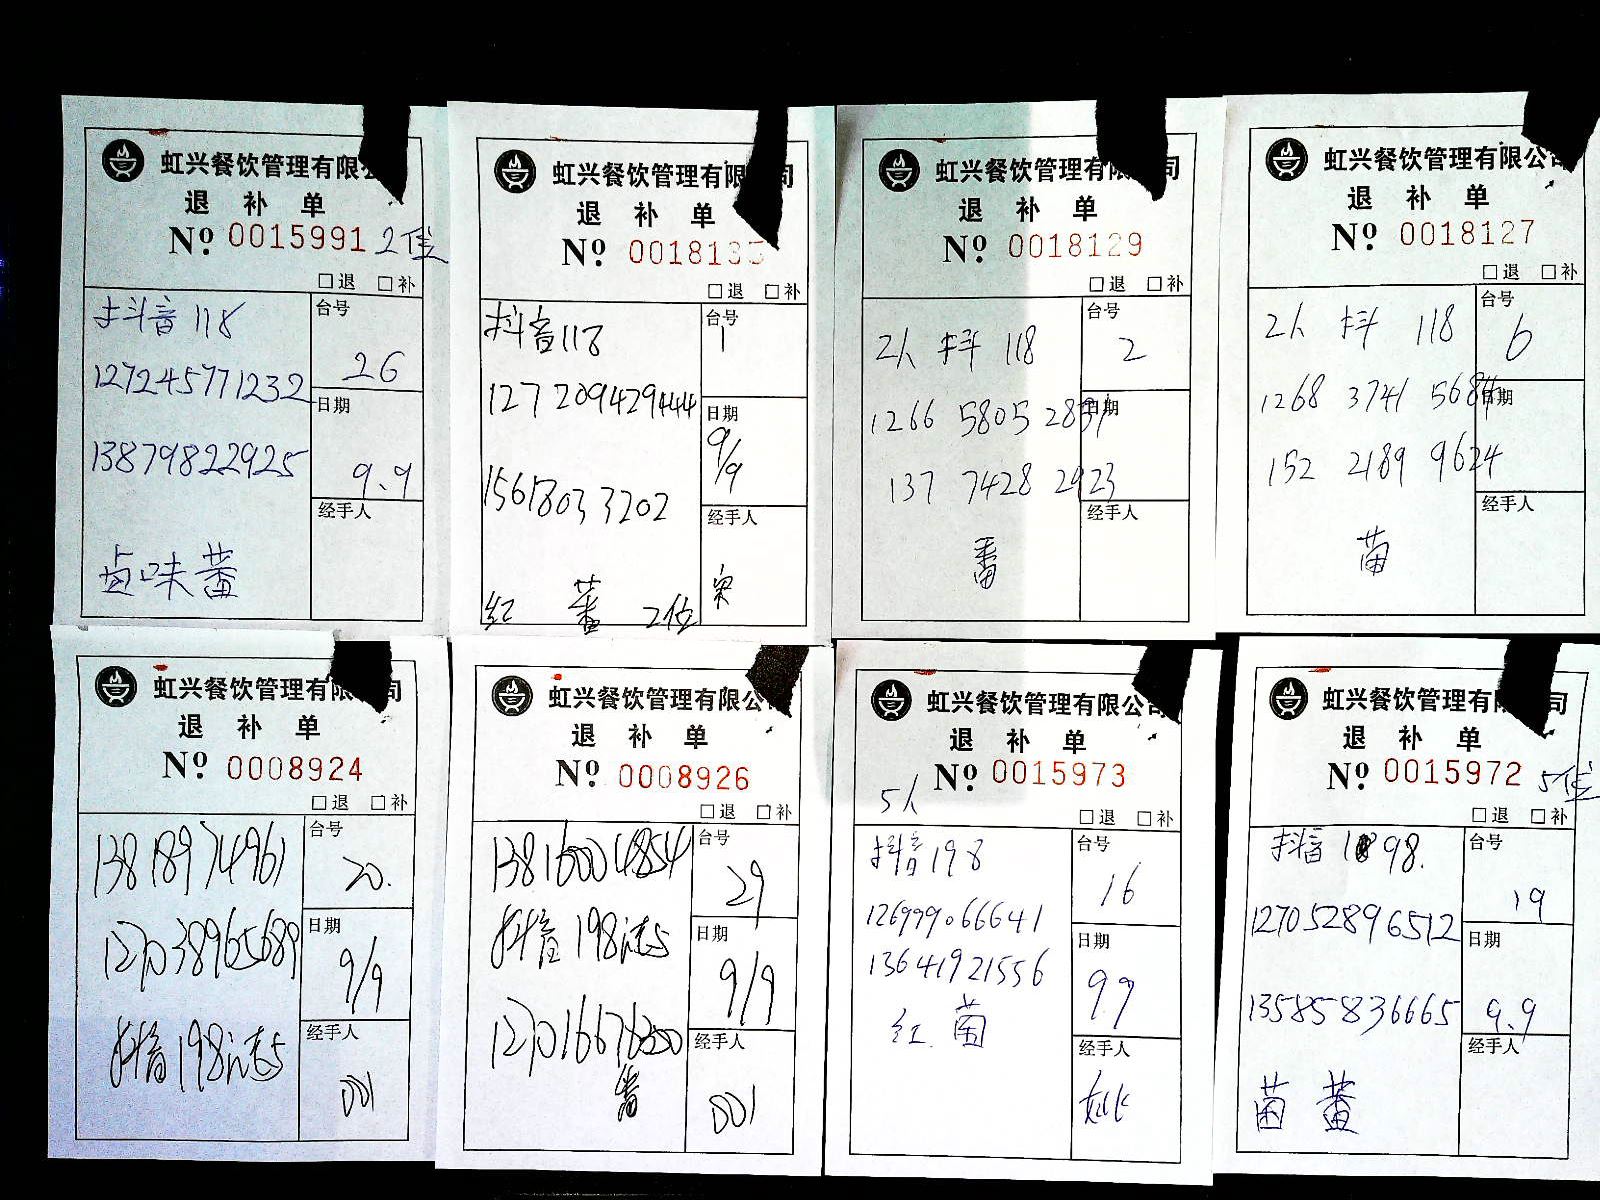 虹兴餐饮管理有限
退 补 单
Nº 0015991 2位
□退 □补
抖音118
台号
26
127245771232
日期
13879822925
9.9
经手人
卤味 蕃
虹兴餐饮管理有限 司
退 补 单
Nº 001813
□退 □补
抖音118
台号
1
127209429444
日期
9/9
15618033202
经手人
红 蕃 2位
虹兴餐饮管理有限 司
退 补 单
Nº 0018129
□退 □补
2人 抖 118
台号
2
1266 5805 2891
日期
137 7428 2923
经手人
番
虹兴餐饮管理有限公司
退 补 单
Nº 0018127
□退 □补
2人 抖 118
台号
6
1268 3741 5684
日期
152 2189 9624
经手人
虹兴餐饮管理有限 司
退 补 单
Nº 0008924
□退 □补
13818974961
台号
20.
127038965689
日期
9/9
抖音198
经手人
001
虹兴餐饮管理有限公
退 补 单
Nº 0008926
□退 □补
13816004854
台号
29
抖音198
日期
9/9
经手人
番
001
虹兴餐饮管理有限公司
退 补 单
Nº 0015973
5人
□退 □补
抖音198
台号
16
126999066641
日期
13641921556
9.9
红 菌
经手人
姚
虹兴餐饮管理有限 司
退 补 单
Nº 0015972 5位
□退 □补
抖音 198.
台号
19
127052896512
日期
13585836665
9.9
经手人
菌 蕃